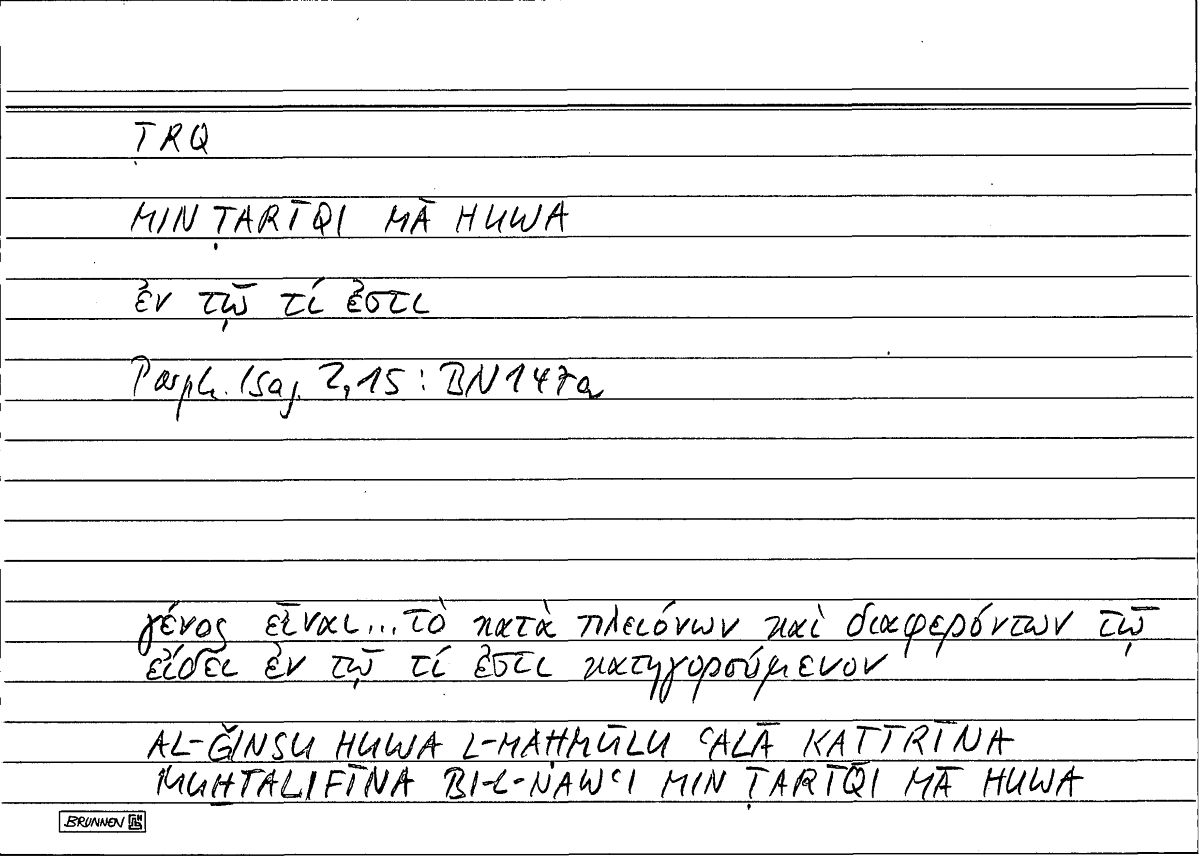 ṬRQ
MIN ṬARĪQI MĀ HUWA
ἐν τῷ τί ἐστι
Porph. Isag. 2,15 : BN 147a
γένος εἶναι... τὸ κατὰ πλειόνων καὶ διαφερόντων τῷ
εἴδει ἐν τῷ τί ἐστι κατηγορούμενον
AL-ǦINSU HUWA L-MAḤMŪLU ʿALĀ KAṮĪRĪNA
MUḪTALIFĪNA BI-L-NAWʿI MIN ṬARĪQI MĀ HUWA
BRUNNEN